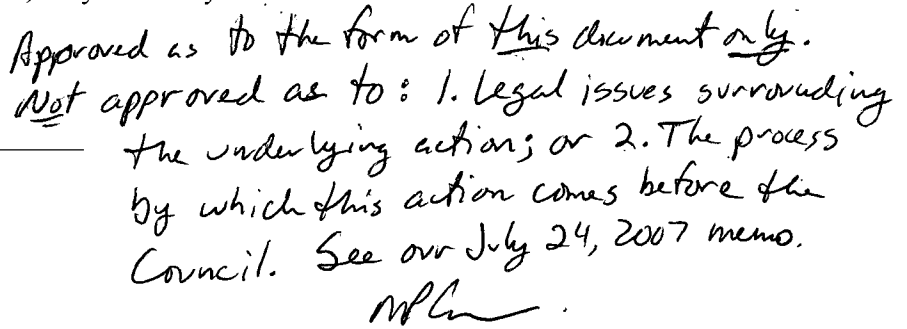 Approved as to the form of this document only.
Not approved as to: 1. Legal issues surrounding
the underlying action; or 2. The process
by which this action comes before the
Council. See our July 24, 2007 memo.